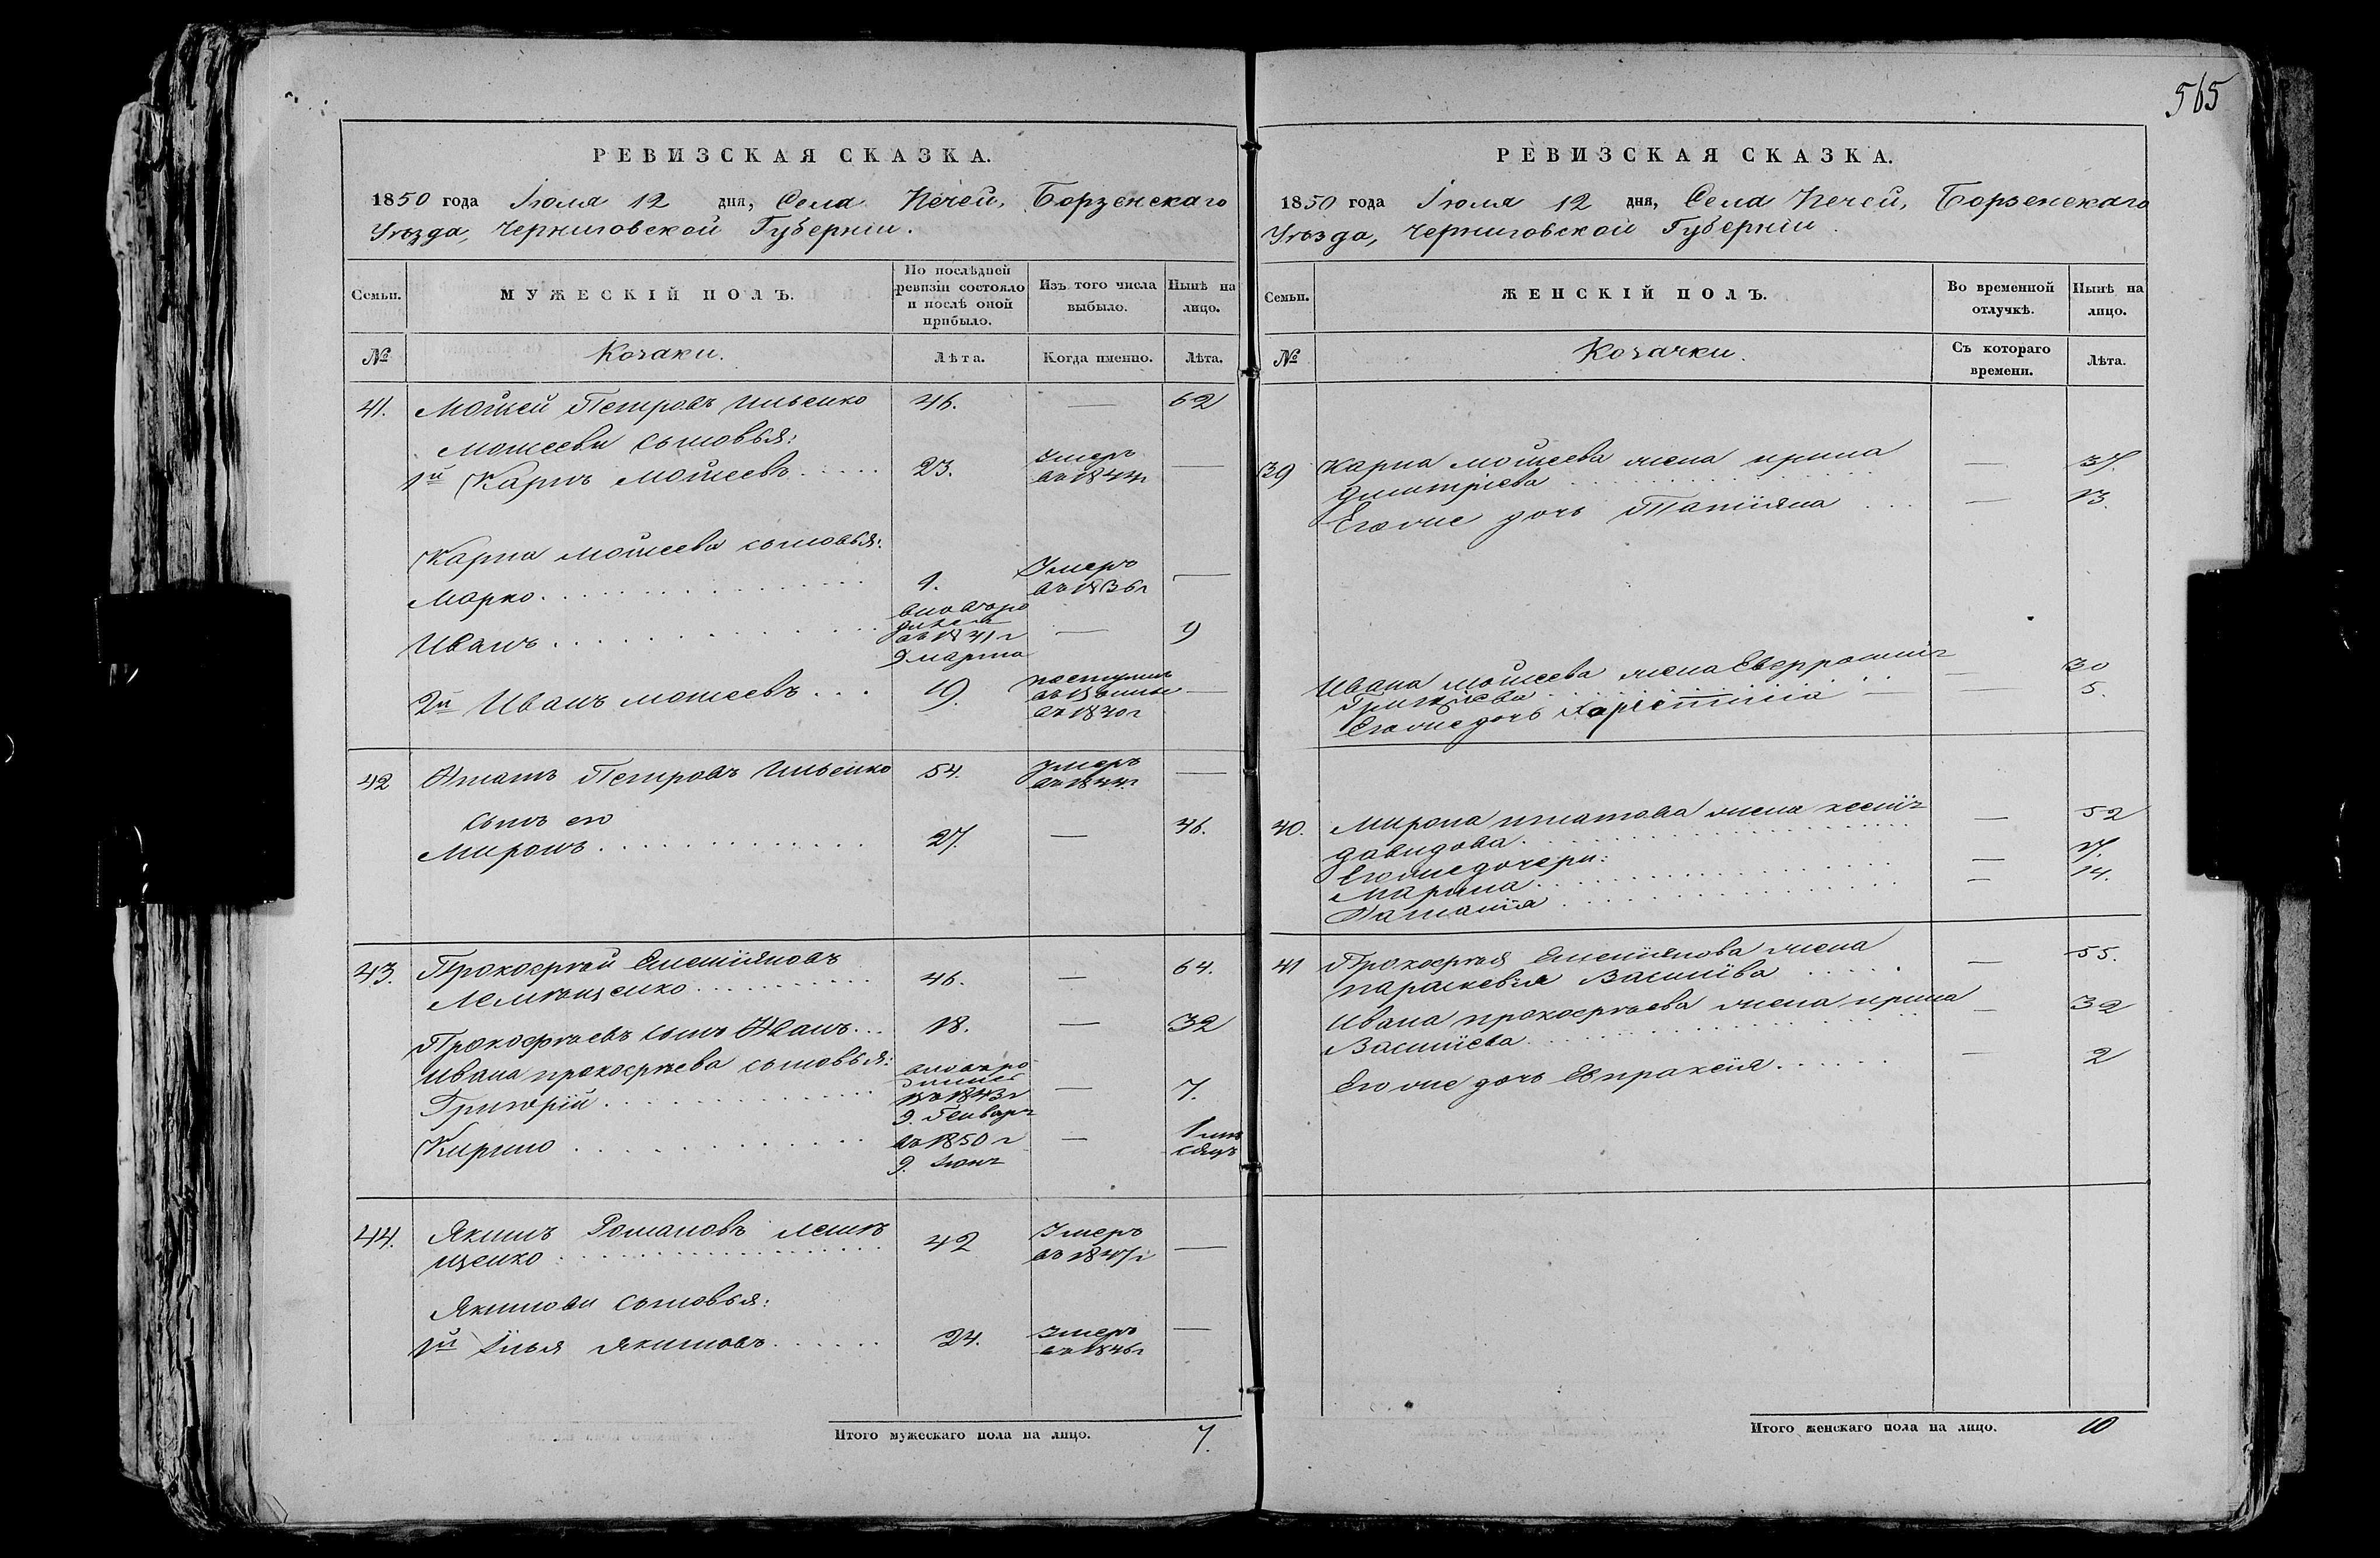 565
РЕВИЗСКАЯ СКАЗКА.
1850 года Іюля 12 дня, Села Печей, Борзенскаго
Уѣзда, Черниговской Губерніи.
Семьи.
МУЖЕСКІЙ ПОЛЪ.
По послѣдней
ревизіи состояло
и послѣ оной
прибыло.
Изъ того числа
выбыло.
Нынѣ на
лицо.
№
Козаки.
Лѣта.
Когда именно.
Лѣта.
41. Мойсей Петровъ Ильенко 46. — 62
Мойсеевы сыновья:
1й Карпъ Мойсеевъ 23. Умеръ —
въ 1844г
Карпа Мойсеева сыновья:
Марко 1. Умеръ —
въ 1836г
Иванъ
въ 1841 г — 9
9 марта
2й Иванъ Мойсеевъ 19. —
въ 1840г
42 Игнатъ Петровъ Ильенко 54. Умеръ —
въ 1844г
сынъ его
Миронъ 27. — 46.
43. Прокофій Емеліяновъ
46. — 64.
Прокофіевъ сынъ Иванъ 18. — 32
Ивана Прокофіева сыновья:
Григорій въ 1843г — 7.
9. Генваря
Кирило въ 1850 г — 1 мѣ
9. Іюня сяцъ
44. Якимъ Романовъ
щенко 42 Умеръ —
въ 1847г
Якимовы сыновья:
1й Илья Якимовъ 24. Умеръ —
въ 1846г
Итого мужескаго пола на лицо. 7.
РЕВИЗСКАЯ СКАЗКА.
1850 года Іюля 12 дня, Села Печей, Борзенскаго
Уѣзда, Черниговской Губерніи.
Семьи.
ЖЕНСКІЙ ПОЛЪ.
Во временной
отлучкѣ.
Нынѣ на
лицо.
№
Козачки.
Съ котораго
времени.
Лѣта.
39 Карпа Мойсеева жена Ирина — 37.
Димитріева
Его же дочь Татіяна — 13.
Ивана Мойсеева жена — 30
Его же дочь — 5.
40. Мирона Игнатова жена Ксенія — 52
Давидова
Его же дочери:
Марина — 17.
Наталія — 14.
41 Прокофія Емеліянова жена — 55.
Параскевія Василіева
Ивана Прокофіева жена Ирина — 32
Василіева
Его же дочь Евпраксія — 2
Итого женскаго пола на лицо. 10